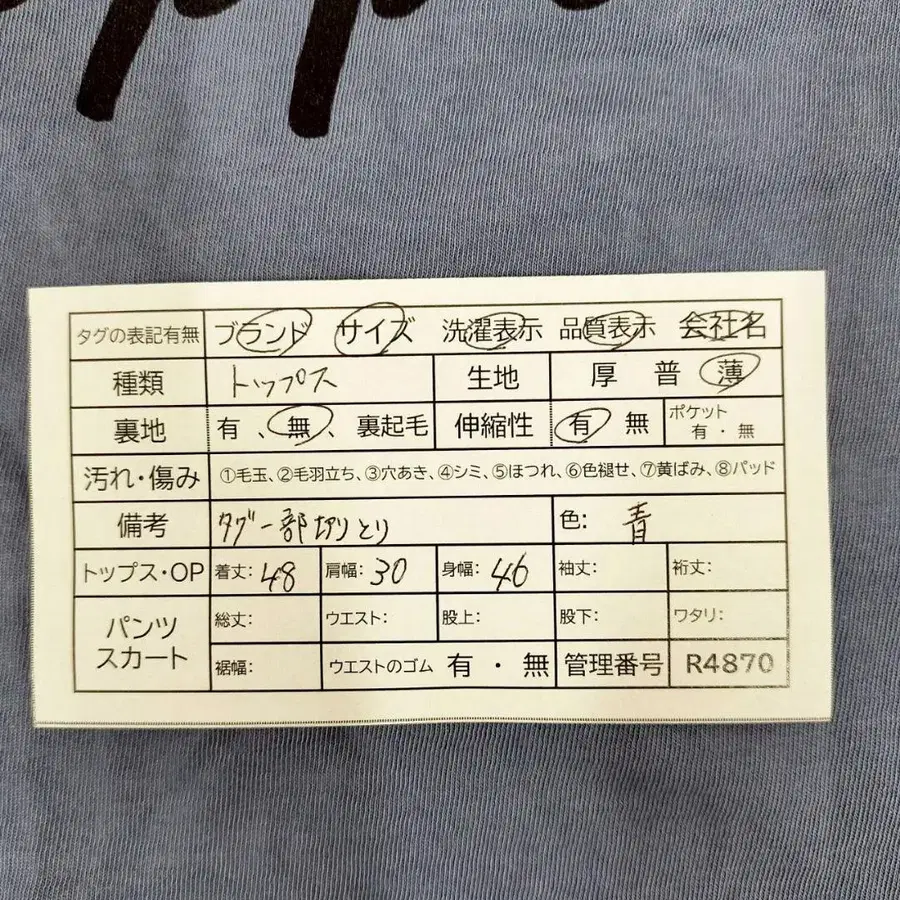 タグの表記有無 ブランド サイズ 洗濯表示 品質表示 会社名
種類 トップス 生地 厚 普 薄
裏地 有、無、裏起毛 伸縮性 有 無 ポケット 有・無
汚れ・傷み ①毛玉、②毛羽立ち、③穴あき、④シミ、⑤ほつれ、⑥色褪せ、⑦黄ばみ、⑧パッド
備考 タグ一部切りとり 色: 青
トップス・OP 着丈: 48 肩幅: 30 身幅: 46 袖丈: 裄丈:
パンツ スカート 総丈: ウエスト: 股上: 股下: ワタリ:
裾幅: ウエストのゴム 有・無 管理番号 R4870